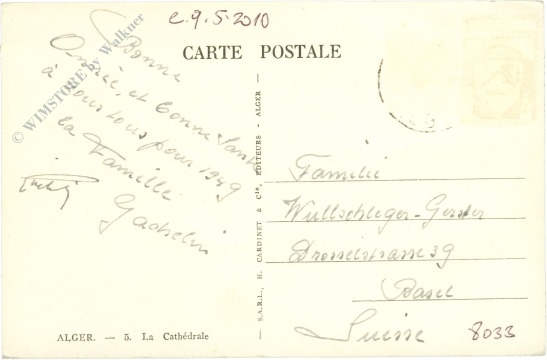 e.9.5.2010
CARTE POSTALE
Bonne
Année, et bonne Santé
à vous tous pour 1949
la Famille
Gachelin
© WIMSTORE by Walkner
S.A.R.L., H. CARDINET & Cie, ÉDITEURS - ALGER -
Familie
Wullschleger-Gerster
Drosselstrasse 39
Basel
Suisse
8033
ALGER. — 5. La Cathédrale